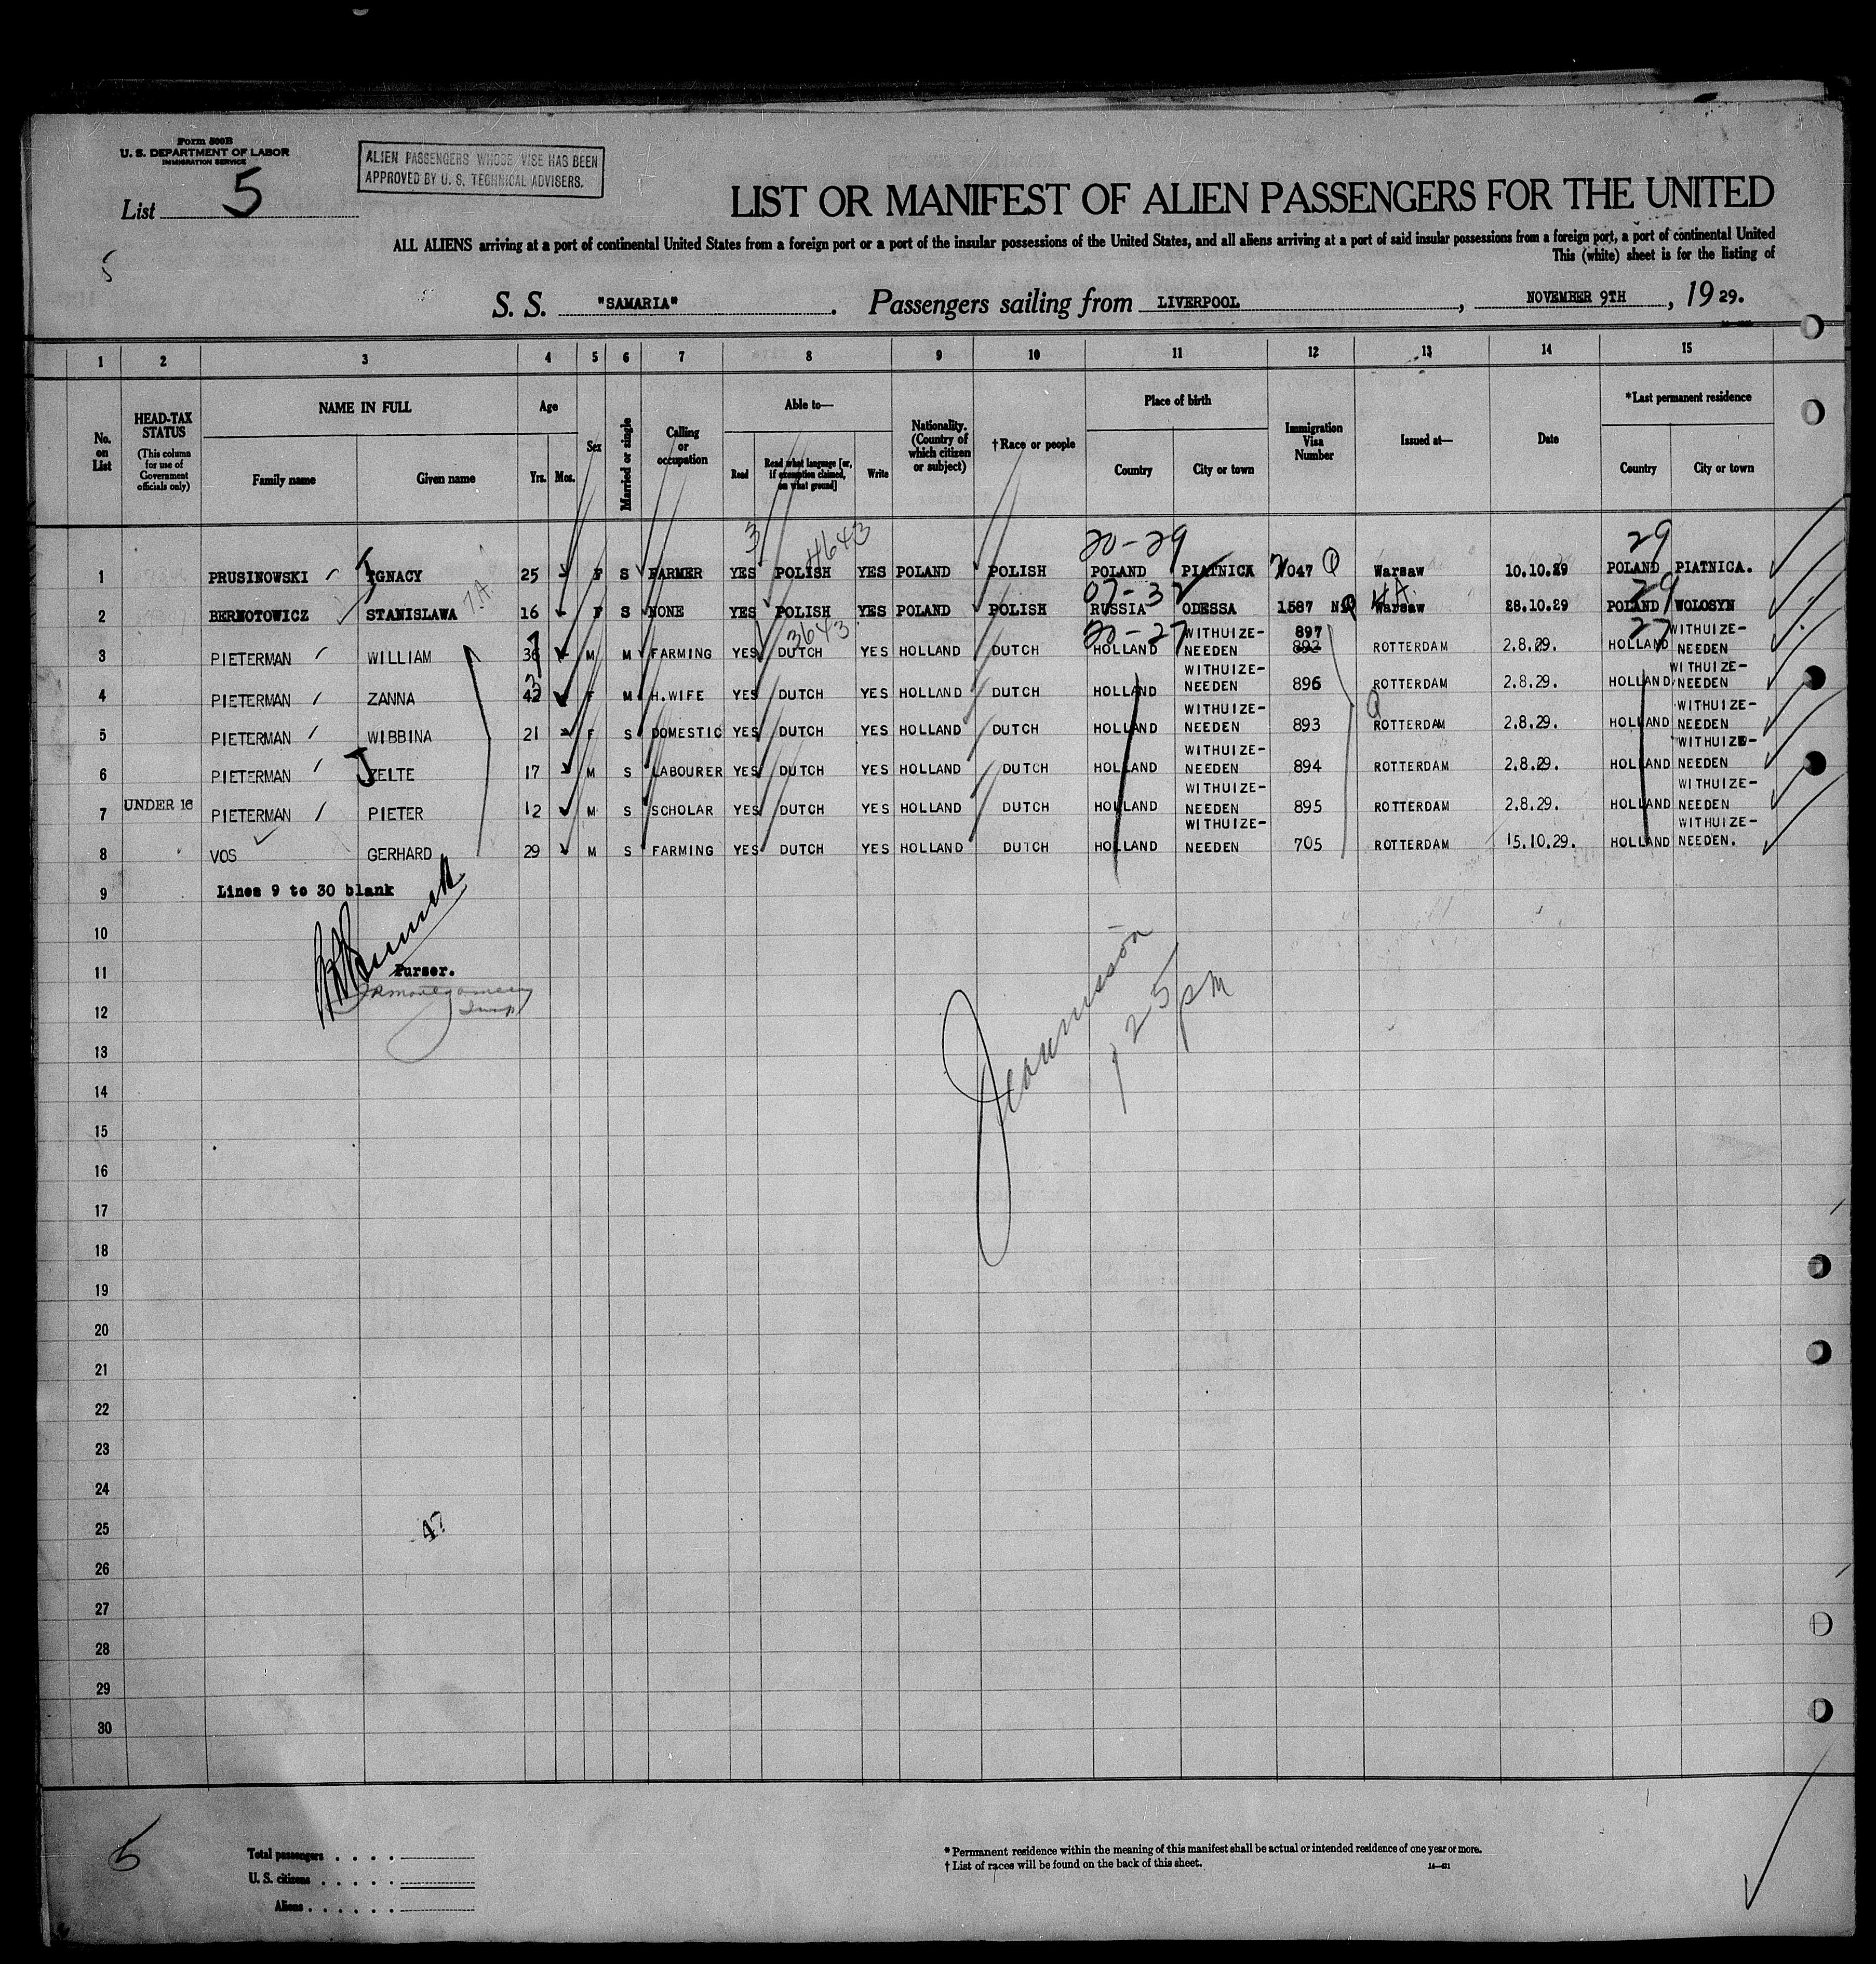 Form 500B
U. S. DEPARTMENT OF LABOR
IMMIGRATION SERVICE
ALIEN PASSENGERS WHOSE VISE HAS BEEN
APPROVED BY U. S. TECHNICAL ADVISERS.
List 5
LIST OR MANIFEST OF ALIEN PASSENGERS FOR THE UNITED
ALL ALIENS arriving at a port of continental United States from a foreign port or a port of the insular possessions of the United States, and all aliens arriving at a port of said insular possessions from a foreign port, a port of continental United
This (white) sheet is for the listing of
S. S. "SAMARIA". Passengers sailing from LIVERPOOL, NOVEMBER 9TH, 19 29.
1 2 3 4 5 6 7 8 9 10 11 12 13 14 15
No. on List
HEAD-TAX STATUS
(This column for use of Government officials only)
NAME IN FULL
Family name Given name
Age
Yrs. Mos.
Sex
Married or single
Calling or occupation
Able to—
Read
Read what language [or, if exemption claimed, on what ground]
Write
Nationality. (Country of which citizen or subject)
†Race or people
Place of birth
Country City or town
Immigration Visa Number
Issued at—
Date
*Last permanent residence
Country City or town
3 4643 20-29 29
1 PRUSINOWSKI IGNACY 25 F S FARMER YES POLISH YES POLAND POLISH POLAND PIATNICA 7047 Q Warsaw 10.10.29 POLAND PIATNICA.
07-3 29
2 BERNOTOWICZ STANISLAWA 16 - F S NONE YES POLISH YES POLAND POLISH RUSSIA ODESSA 1587 NQ Warsaw 28.10.29 POLAND WOLOSYN
3643 20-27 27
3 PIETERMAN WILLIAM 36 M M FARMING YES DUTCH YES HOLLAND DUTCH HOLLAND WITHUIZE-NEEDEN 897 892 ROTTERDAM 2.8.29. HOLLAND WITHUIZE-NEEDEN
4 PIETERMAN ZANNA 42 F M H.WIFE YES DUTCH YES HOLLAND DUTCH HOLLAND WITHUIZE-NEEDEN 896 ROTTERDAM 2.8.29. HOLLAND WITHUIZE-NEEDEN
5 PIETERMAN WIBBINA 21 F S DOMESTIC YES DUTCH YES HOLLAND DUTCH HOLLAND WITHUIZE-NEEDEN 893 ROTTERDAM 2.8.29. HOLLAND WITHUIZE-NEEDEN
6 PIETERMAN JELTE 17 M S LABOURER YES DUTCH YES HOLLAND DUTCH HOLLAND WITHUIZE-NEEDEN 894 ROTTERDAM 2.8.29. HOLLAND WITHUIZE-NEEDEN
7 UNDER 16 PIETERMAN PIETER 12 M S SCHOLAR YES DUTCH YES HOLLAND DUTCH HOLLAND WITHUIZE-NEEDEN 895 ROTTERDAM 2.8.29. HOLLAND WITHUIZE-NEEDEN
8 VOS GERHARD 29 M S FARMING YES DUTCH YES HOLLAND DUTCH HOLLAND WITHUIZE-NEEDEN 705 ROTTERDAM 15.10.29. HOLLAND WITHUIZE-NEEDEN.
9 Lines 9 to 30 blank
10
11 Purser.
12
13
14
15
16
17
18
19
20
21
22
23
24
25
47
26
27
28
29
30
1 25 pm
5
Total passengers . . . .
U. S. citizens . . . . .
Aliens . . . . . .
* Permanent residence within the meaning of this manifest shall be actual or intended residence of one year or more.
† List of races will be found on the back of this sheet.